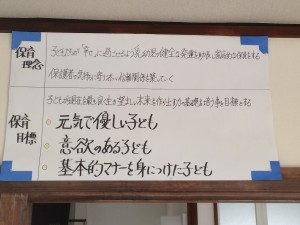 保育理念
子どもたちが「幸せ」に過ごせるよう、幼児の健全な発達を助長し家庭的な保育をする
保護者の気持に寄り添い信頼関係を築いていく
保育目標
子どもが現在を最も良く生き望ましい未来を作り出す力の基礎を培う事を目標とする
元気で優しい子ども
意欲のある子ども
基本的マナーを身につけた子ども